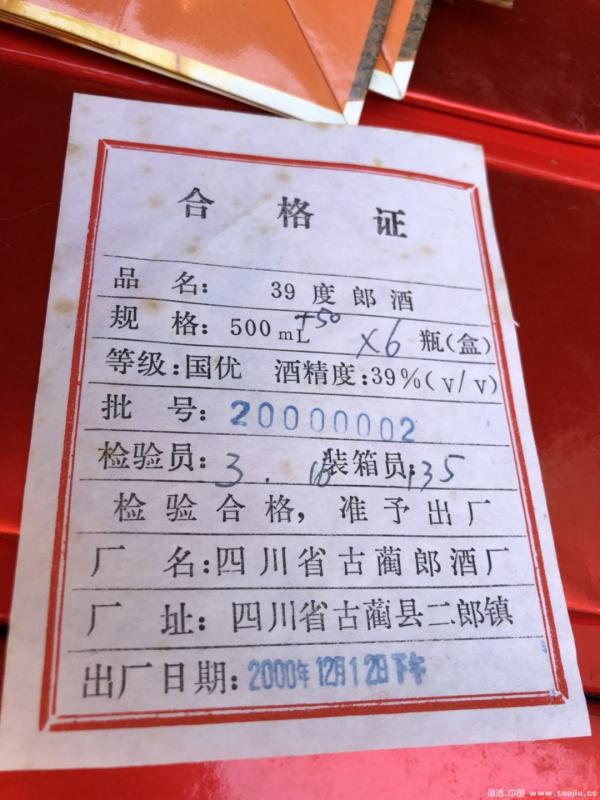 合格证
品名: 39度郎酒
规格: 500mL+50 ×6瓶(盒)
等级:国优 酒精度:39%(v/v)
批号: 20000002
检验员: 3. 装箱员: 135
检验合格,准予出厂
厂名:四川省古蔺郎酒厂
厂址:四川省古蔺县二郎镇
出厂日期: 2000年12月12日下午
淘酒.中国 - www.taojiu.cc